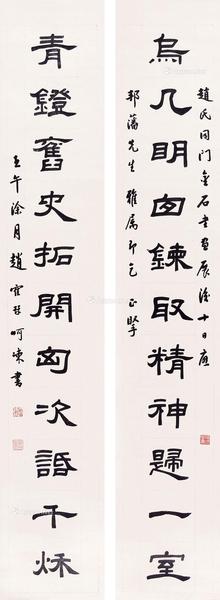 烏几明囪鍊取精神歸一室
趙氏同門金石書畫展後十日應
邦藩先生雅屬即乞正
青鐙舊史拓開匈次語千秌
壬午涂月趙寉琴呵凍書